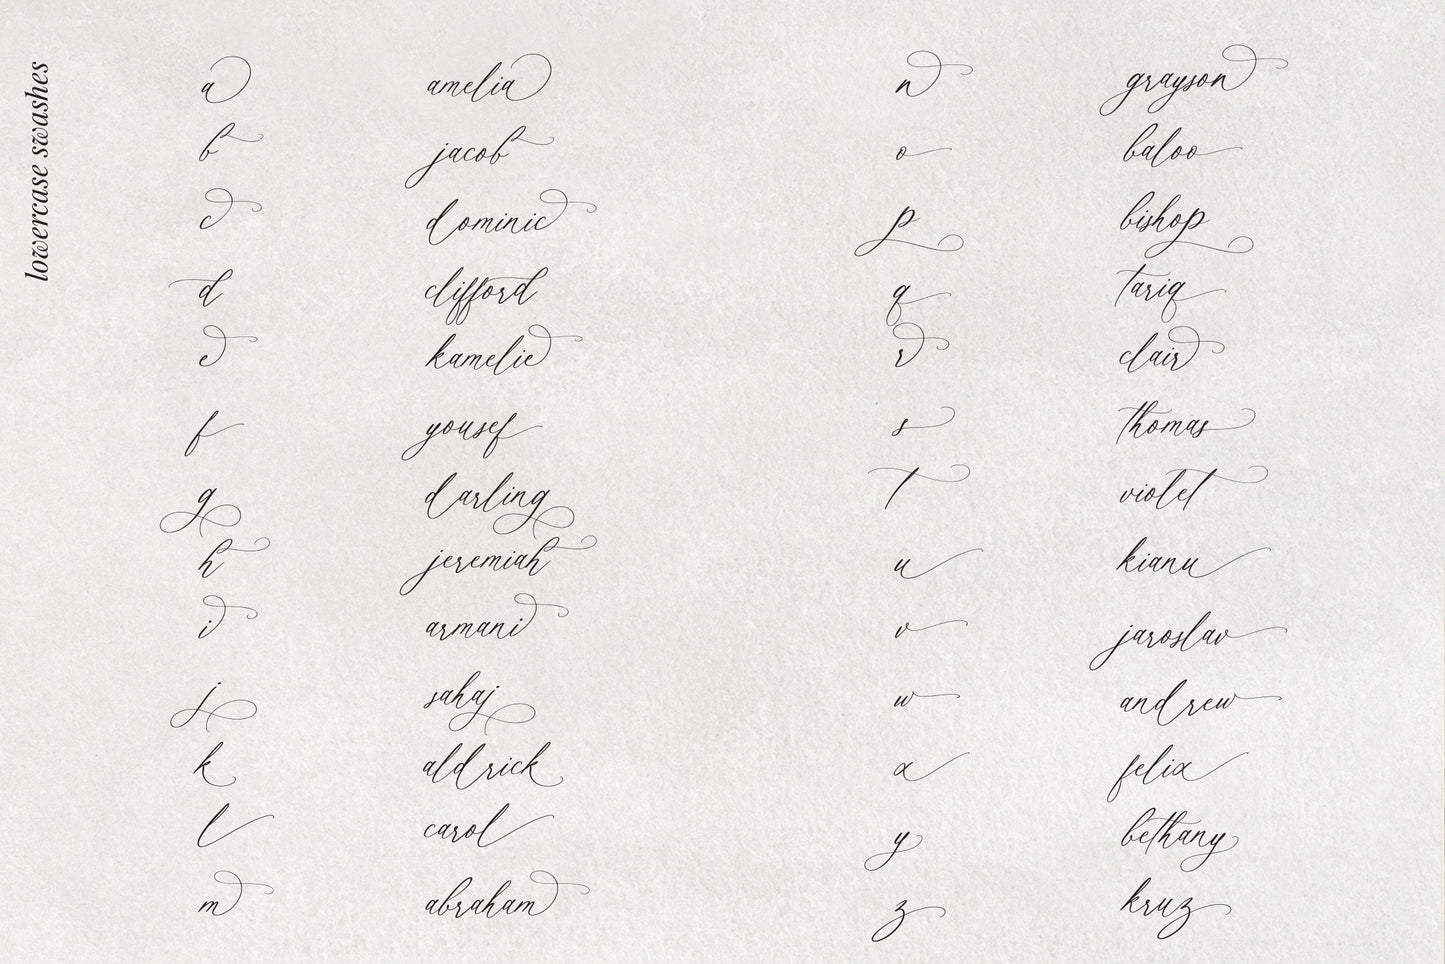 lowercase swashes
a amelia
b jacob
c dominic
d clifford
e kamelie
f yousef
g darling
h jeremiah
i armani
j sahaj
k aldrick
l carol
m abraham
n grayson
o baloo
p bishop
q tariq
r clair
s thomas
t violet
u kianu
v jaroslav
w andrew
x felix
y bethany
z kruz